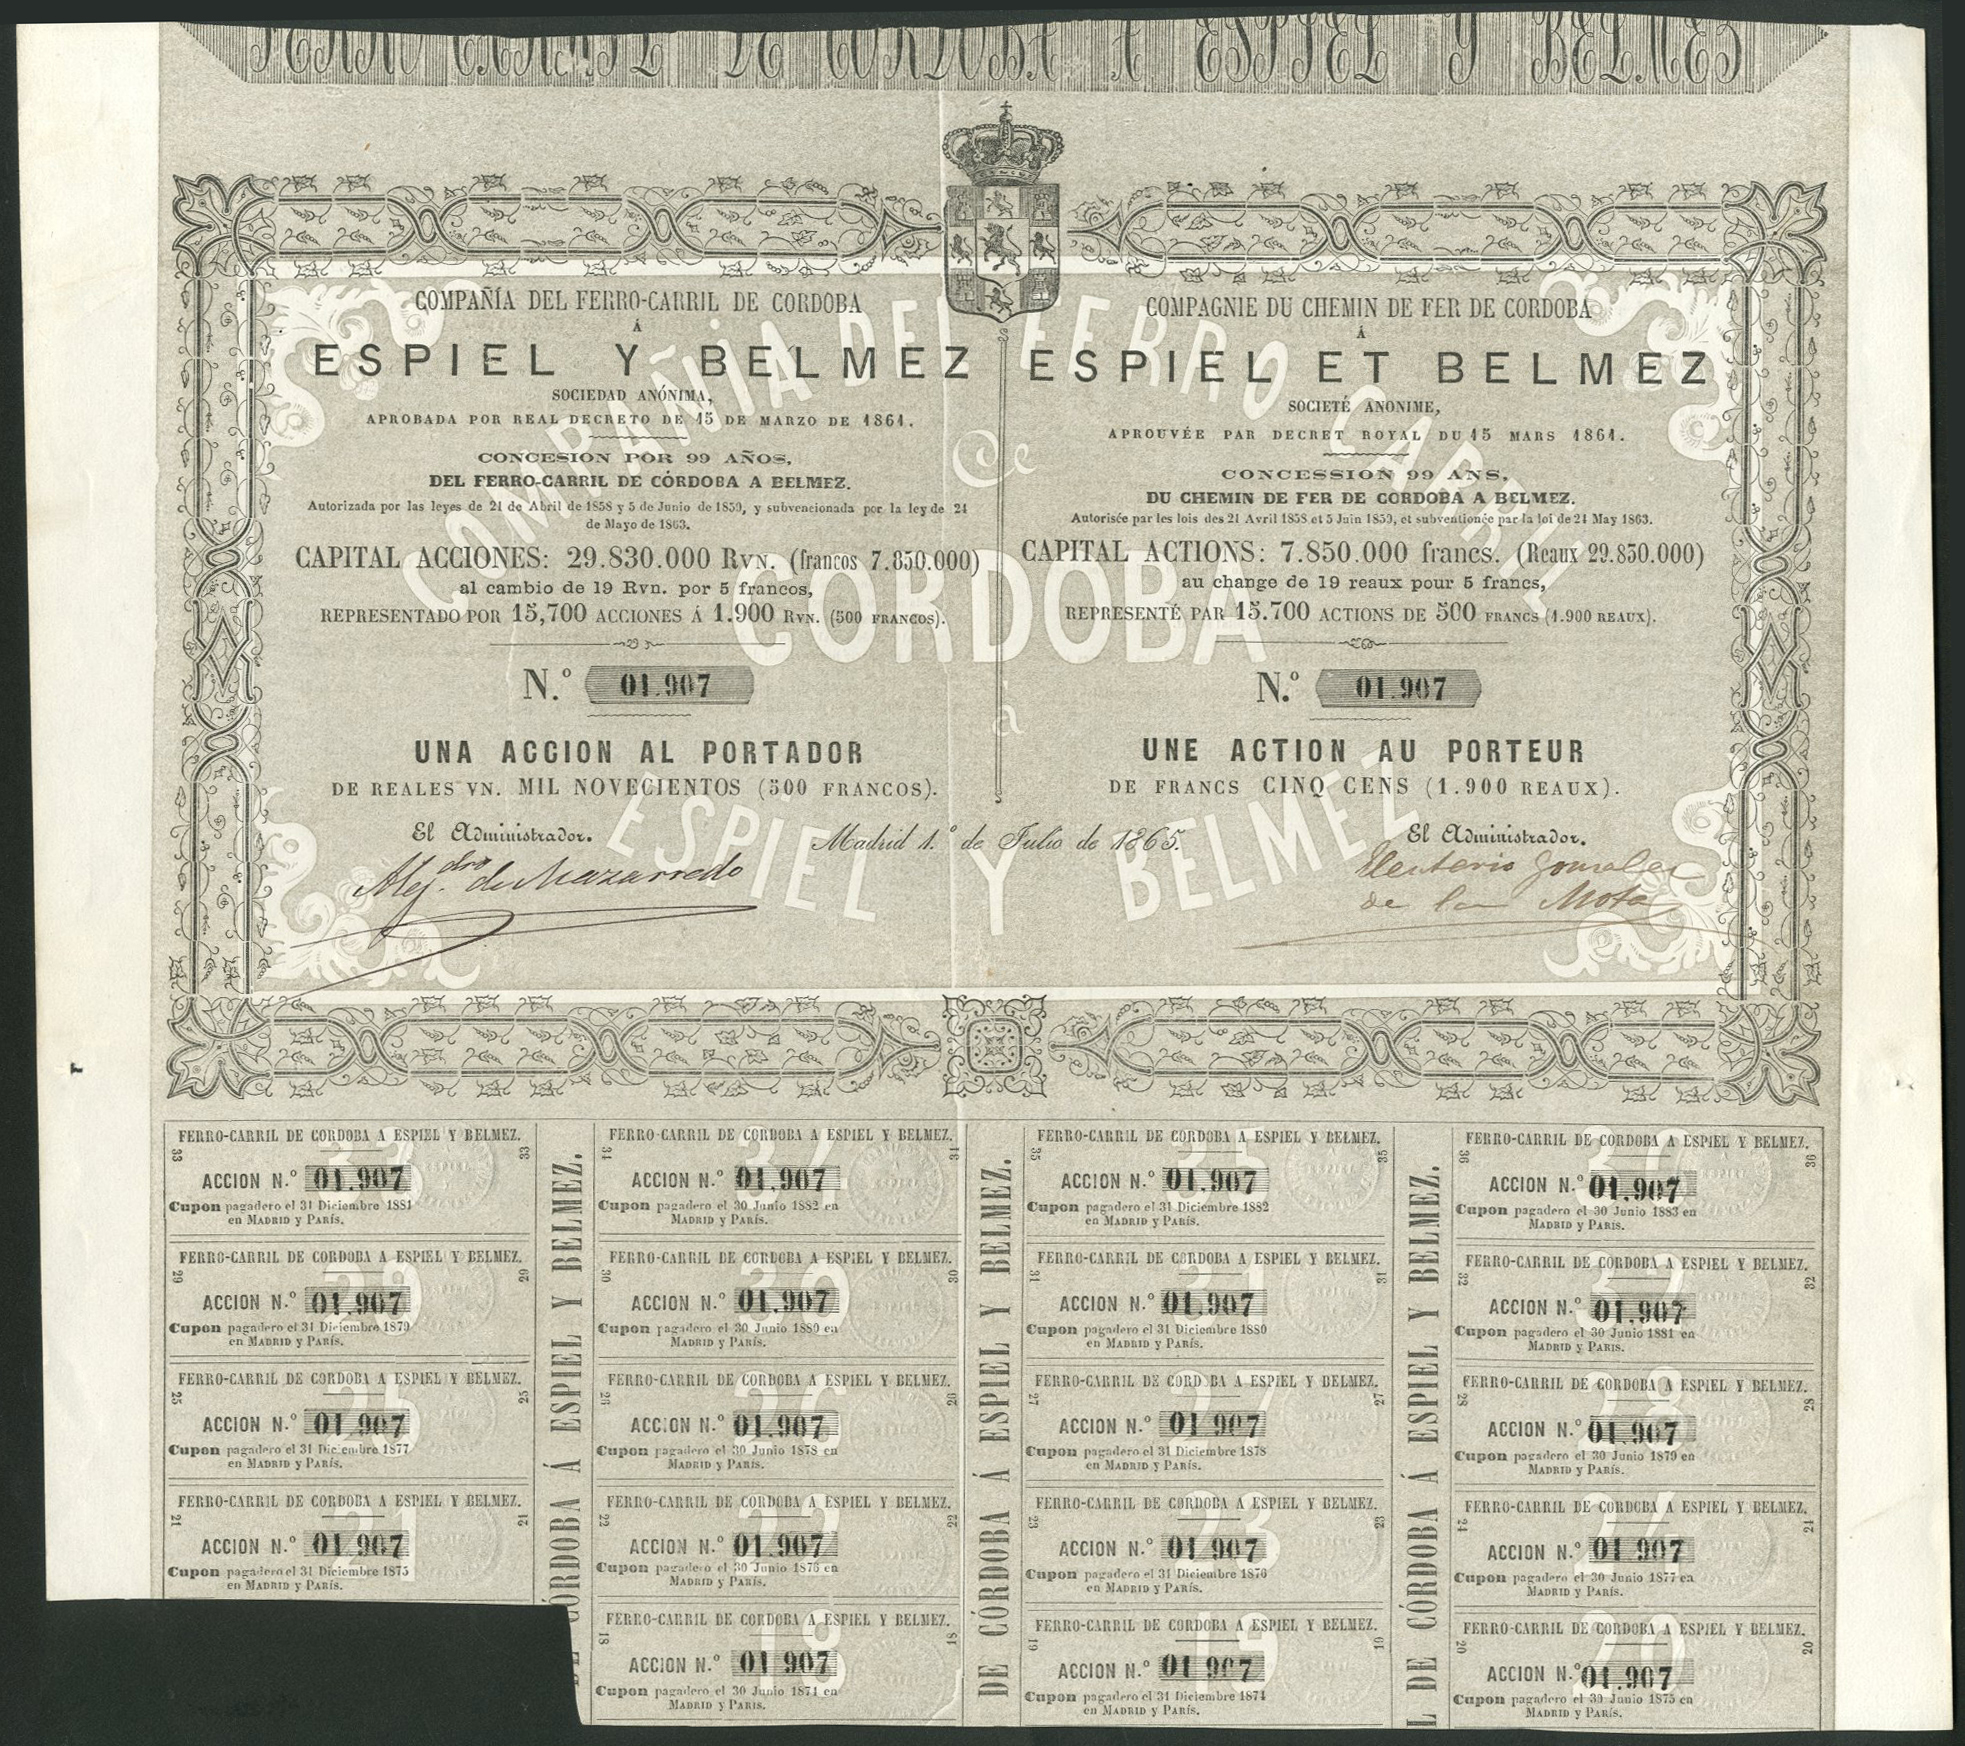 FERRO-CARRIL DE CORDOBA A ESPIEL Y BELMEZ
COMPAÑÍA DEL FERRO-CARRIL DE CORDOBA
Á
ESPIEL Y BELMEZ
SOCIEDAD ANÓNIMA,
APROBADA POR REAL DECRETO DE 15 DE MARZO DE 1861.
CONCESION POR 99 AÑOS,
DEL FERRO-CARRIL DE CÓRDOBA A BELMEZ.
Autorizada por las leyes de 21 de Abril de 1858 y 5 de Junio de 1859, y subvencionada por la ley de 24
de Mayo de 1863.
CAPITAL ACCIONES: 29.830.000 RVN. (francos 7.850.000)
al cambio de 19 Rvn. por 5 francos,
REPRESENTADO POR 15,700 ACCIONES Á 1.900 RVN. (500 FRANCOS).
N.º 01.907
UNA ACCION AL PORTADOR
DE REALES VN. MIL NOVECIENTOS (500 FRANCOS).
El Administrador.
Alej.dro de Mazarredo
COMPAGNIE DU CHEMIN DE FER DE CORDOBA
Á
ESPIEL ET BELMEZ
SOCIETÉ ANONIME,
APROUVÉE PAR DECRET ROYAL DU 15 MARS 1861.
CONCESSION 99 ANS,
DU CHEMIN DE FER DE CORDOBA A BELMEZ.
Autorisée par les lois des 21 Avril 1858 et 5 Juin 1859, et subventionée par la loi de 24 May 1863.
CAPITAL ACTIONS: 7.850.000 francs. (Reaux 29.830.000)
au change de 19 reaux pour 5 francs,
REPRESENTÉ PAR 15.700 ACTIONS DE 500 FRANCS (1.900 REAUX).
N.º 01.907
UNE ACTION AU PORTEUR
DE FRANCS CINQ CENS (1.900 REAUX).
Madrid 1.º de Julio de 1865.
El Administrador.
Eleuterio Gonzalez
de la Mota
COMPAÑIA DEL FERRO CARRIL
de
CORDOBA
a
ESPIEL Y BELMEZ
33 33
FERRO-CARRIL DE CORDOBA A ESPIEL Y BELMEZ.
ACCION N.º 01.907
Cupon pagadero el 31 Diciembre 1881
en MADRID y PARÍS.
34 34
FERRO-CARRIL DE CORDOBA A ESPIEL Y BELMEZ.
ACCION N.º 01.907
Cupon pagadero el 30 Junio 1882 en
MADRID y PARÍS.
35 35
FERRO-CARRIL DE CORDOBA A ESPIEL Y BELMEZ.
ACCION N.º 01.907
Cupon pagadero el 31 Diciembre 1882
en MADRID y PARÍS.
36 36
FERRO-CARRIL DE CORDOBA A ESPIEL Y BELMEZ.
ACCION N.º 01.907
Cupon pagadero el 30 Junio 1883 en
MADRID y PARÍS.
29 29
FERRO-CARRIL DE CORDOBA A ESPIEL Y BELMEZ.
ACCION N.º 01.907
Cupon pagadero el 31 Diciembre 1879
en MADRID y PARÍS.
30 30
FERRO-CARRIL DE CORDOBA A ESPIEL Y BELMEZ.
ACCION N.º 01.907
Cupon pagadero el 30 Junio 1880 en
MADRID y PARÍS.
31 31
FERRO-CARRIL DE CORDOBA A ESPIEL Y BELMEZ.
ACCION N.º 01.907
Cupon pagadero el 31 Diciembre 1880
en MADRID y PARÍS.
32 32
FERRO-CARRIL DE CORDOBA A ESPIEL Y BELMEZ.
ACCION N.º 01.907
Cupon pagadero el 30 Junio 1881 en
MADRID y PARIS.
25 25
FERRO-CARRIL DE CORDOBA A ESPIEL Y BELMEZ.
ACCION N.º 01.907
Cupon pagadero el 31 Diciembre 1877
en MADRID y PARÍS.
26 26
FERRO-CARRIL DE CORDOBA A ESPIEL Y BELMEZ.
ACCION N.º 01.907
Cupon pagadero el 30 Junio 1878 en
MADRID y PARÍS.
27 27
FERRO-CARRIL DE CORDOBA A ESPIEL Y BELMEZ.
ACCION N.º 01.907
Cupon pagadero el 31 Diciembre 1878
en MADRID y PARÍS.
28 28
FERRO-CARRIL DE CORDOBA A ESPIEL Y BELMEZ.
ACCION N.º 01.907
Cupon pagadero el 30 Junio 1879 en
MADRID y PARÍS.
21 21
FERRO-CARRIL DE CORDOBA A ESPIEL Y BELMEZ.
ACCION N.º 01.907
Cupon pagadero el 31 Diciembre 1875
en MADRID y PARÍS.
22 22
FERRO-CARRIL DE CORDOBA A ESPIEL Y BELMEZ.
ACCION N.º 01.907
Cupon pagadero el 30 Junio 1876 en
MADRID y PARÍS.
23 23
FERRO-CARRIL DE CORDOBA A ESPIEL Y BELMEZ.
ACCION N.º 01.907
Cupon pagadero el 31 Diciembre 1876
en MADRID y PARÍS.
24 24
FERRO-CARRIL DE CORDOBA A ESPIEL Y BELMEZ.
ACCION N.º 01.907
Cupon pagadero el 30 Junio 1877 en
MADRID y PARÍS.
18 18
FERRO-CARRIL DE CORDOBA A ESPIEL Y BELMEZ.
ACCION N.º 01.907
Cupon pagadero el 30 Junio 1874 en
MADRID y PARIS.
19 19
FERRO-CARRIL DE CORDOBA A ESPIEL Y BELMEZ.
ACCION N.º 01.907
Cupon pagadero el 31 Diciembre 1874
en MADRID y PARÍS.
20 20
FERRO-CARRIL DE CORDOBA A ESPIEL Y BELMEZ.
ACCION N.º 01.907
Cupon pagadero el 30 Junio 1875 en
MADRID y PARÍS.
DE CÓRDOBA Á ESPIEL Y BELMEZ.
DE CÓRDOBA Á ESPIEL Y BELMEZ.
L DE CÓRDOBA Á ESPIEL Y BELMEZ.